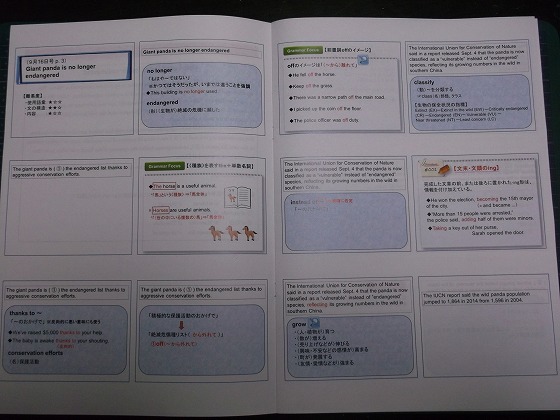 [9月16日号 p. 3]
Giant panda is no longer
endangered
【難易度】
・使用語彙 ★☆☆
・文の構造 ★★☆
・内容 ★☆☆
Giant panda is no longer endangered
no longer
「もはや～ではない」
◆This building is no longer used.
endangered
The giant panda is ( ① ) the endangered list thanks to
aggressive conservation efforts.
Grammar Focus
◆The horse is a useful animal.
◆Horses are useful animals.
The giant panda is ( ① ) the endangered list thanks to
aggressive conservation efforts.
thanks to ～
◆We've raised $5,000 thanks to your help.
◆The baby is awake thanks to your shouting.
conservation efforts
(名)保護活動
The giant panda is ( ① ) the endangered list thanks to
aggressive conservation efforts.
「積極的な保護活動のおかげで」
「絶滅危惧種リスト(から外れて)」
①off(～から外れて)
Grammar Focus 【前置詞offのイメージ】
offのイメージは「(～から)離れて」
◆He fell off the horse.
◆Keep off the grass.
◆There was a narrow path off the main road.
◆I picked up the coin off the floor.
◆The police officer was off duty.
The International Union for Conservation of Nature
said in a report released Sept. 4 that the panda is now
classified as a "vulnerable" instead of "endangered"
species, reflecting its growing numbers in the wild in
southern China.
classify
(動)～を分類する
The International Union for Conservation of Nature
said in a report released Sept. 4 that the panda is now
classified as a "vulnerable" instead of "endangered"
species, reflecting its growing numbers in the wild in
southern China.
instead of
【文末・文頭のing】
◆He won the election, becoming the 15th mayor
of the city.
(= and became…)
◆"More than 15 people were arrested,"
the police said, adding half of them were minors.
◆Taking a key out of her purse,
Sarah opened the door.
The International Union for Conservation of Nature
said in a report released Sept. 4 that the panda is now
classified as a "vulnerable" instead of "endangered"
species, reflecting its growing numbers in the wild in
southern China.
grow
・(人・植物が)育つ
・(数が)増える
・(売り上げなどが)伸びる
・(興味・不安などの感情が)高まる
・(町が)発展する
・(友情・愛情などが)強まる
The IUCN report said the wild panda population
jumped to 1,864 in 2014 from 1,596 in 2004.